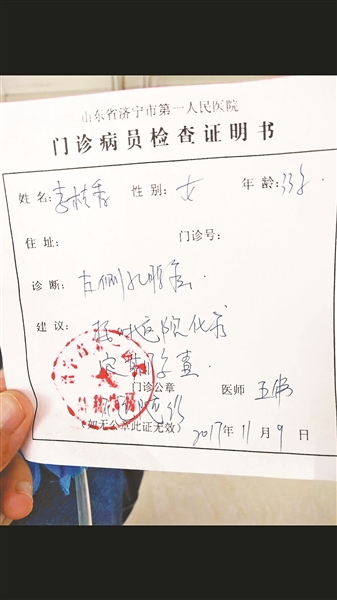 山东省济宁市第一人民医院
门诊病员检查证明书
姓名:李桂香 性别:女 年龄:33岁
住址: 门诊号:
诊断:左侧乳腺癌.
建议:按时返院化疗
定期复查.
门诊公章 医师 王伟
(如无公章此证无效) 2017年11月9日